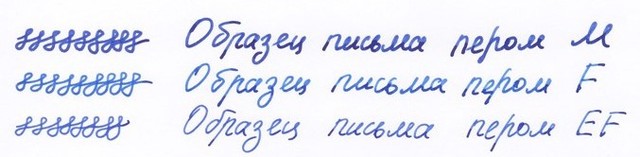 Образец письма пером M
Образец письма пером F
Образец письма пером EF